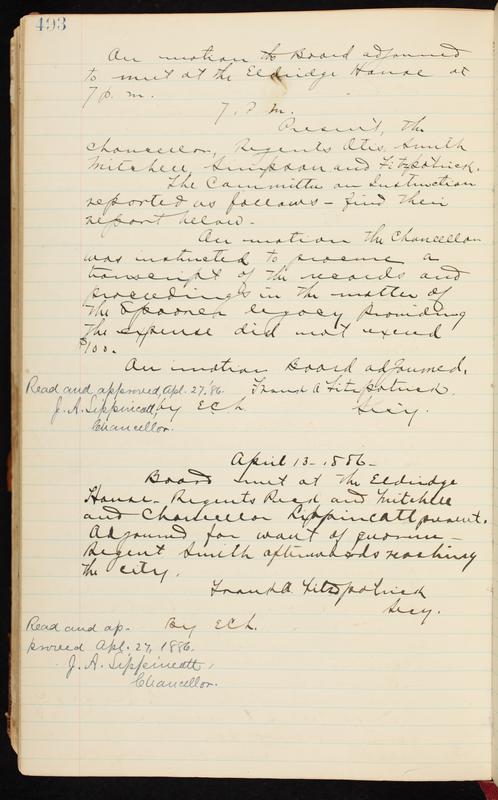 493
On motion the Board adjourned
to meet at the Eldridge House at
7 p. m.
7. P. M.
Present, the
Chancellor, Regents Otis, Smith
Mitchell, Simpson and Fitzpatrick.
The Committee on Instruction
reported as follows - find their
report below.
On motion the Chancellor
was instructed to procure a
transcript of the records and
proceedings in the matter of
the Spooner legacy providing
the expense did not exceed
$100.
On motion Board adjourned.
Read and approved, Apl. 27, '86. Frank A Fitzpatrick
J. A. Lippincott, by ECh. Secy.
Chancellor.
April 13 - 1886 -
Board met at the Eldridge
House - Regents Reed and Mitchell
and Chancellor Lippincott present.
Adjourned for want of quorum -
Regent Smith afterwards reaching
the city.
Frank A Fitzpatrick
Secy.
Read and ap- By ECh.
proved Apl. 27, 1886.
J. A. Lippincott,
Chancellor.